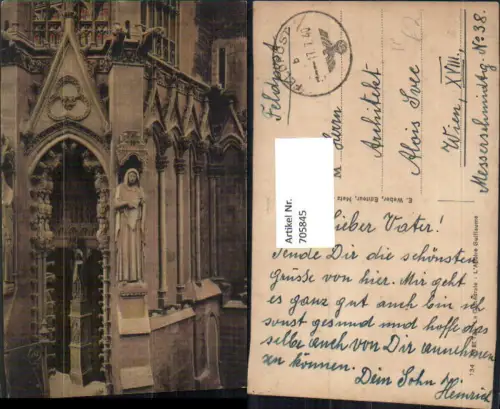 Feldpost
FELDPOST
b
17.7.40
M
Herrn
Architekt
Alois Svec
Wien, XVIII.
Messerschmidtg. No 38.
Artikel Nr.
705845
E. Weber, Editeur, Metz
Lieber Vater!
Sende Dir die schönsten
Grüsse von hier. Mir geht
es ganz gut auch bin ich
sonst gesund und hoffe das
selbe auch von Dir annehmen
zu können.
Dein Sohn
Heinrich
134